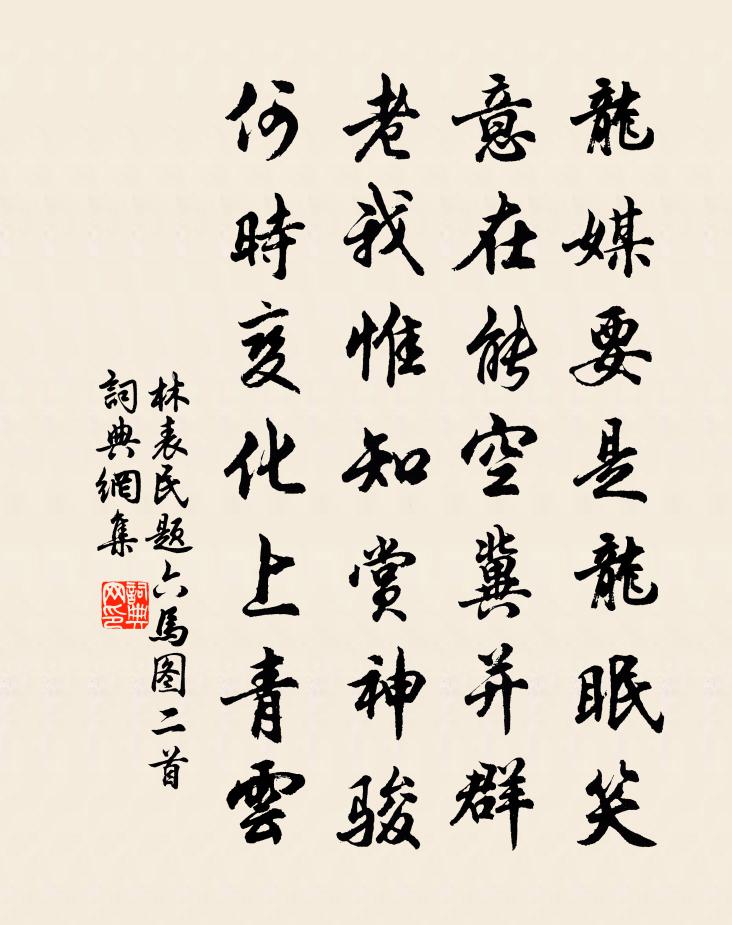 龍媒要是龍眠笑
意在能空冀并群
老我惟知赏神骏
何時变化上青雲
林表民题六馬图二首
詞典網集
詞典网印